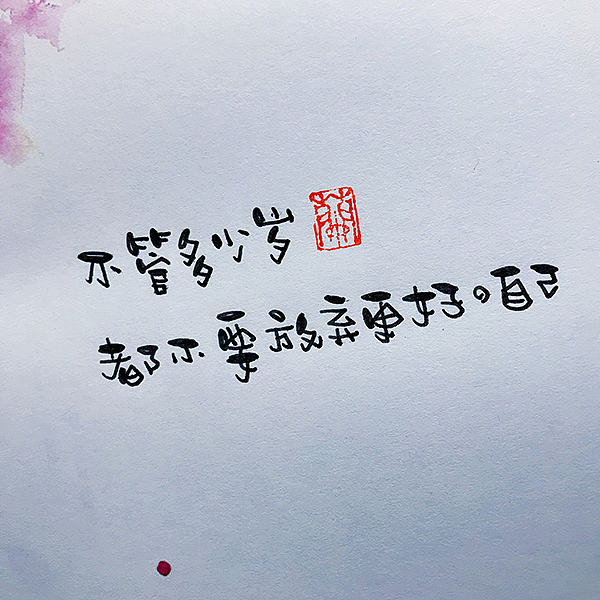 不管多少岁
都不要放弃更好的自己